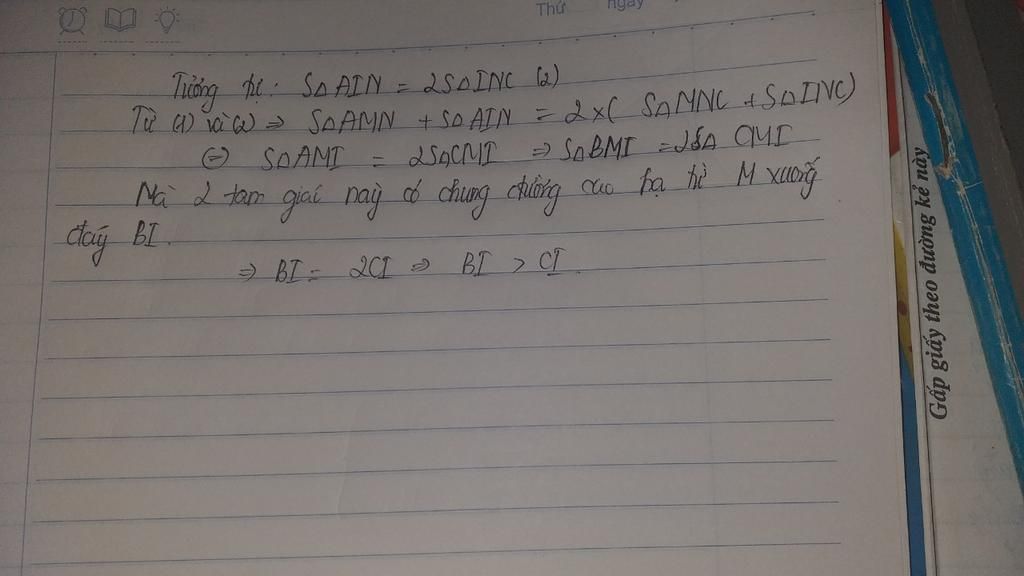 Thứ ngày
Tương tự: S△AIN = 2S△INC (2)
Từ (1) và (2) ⇒ S△AMN + S△AIN = 2 x ( S△MNC + S△INC)
⇔ S△AMI = 2S△CMI ⇒ S△BMI = 2S△ CMI
Mà 2 tam giác này có chung đường cao hạ từ M xuống
đáy BI.
⇒ BI = 2CI ⇒ BI > CI.
Gấp giấy theo đường kẻ này